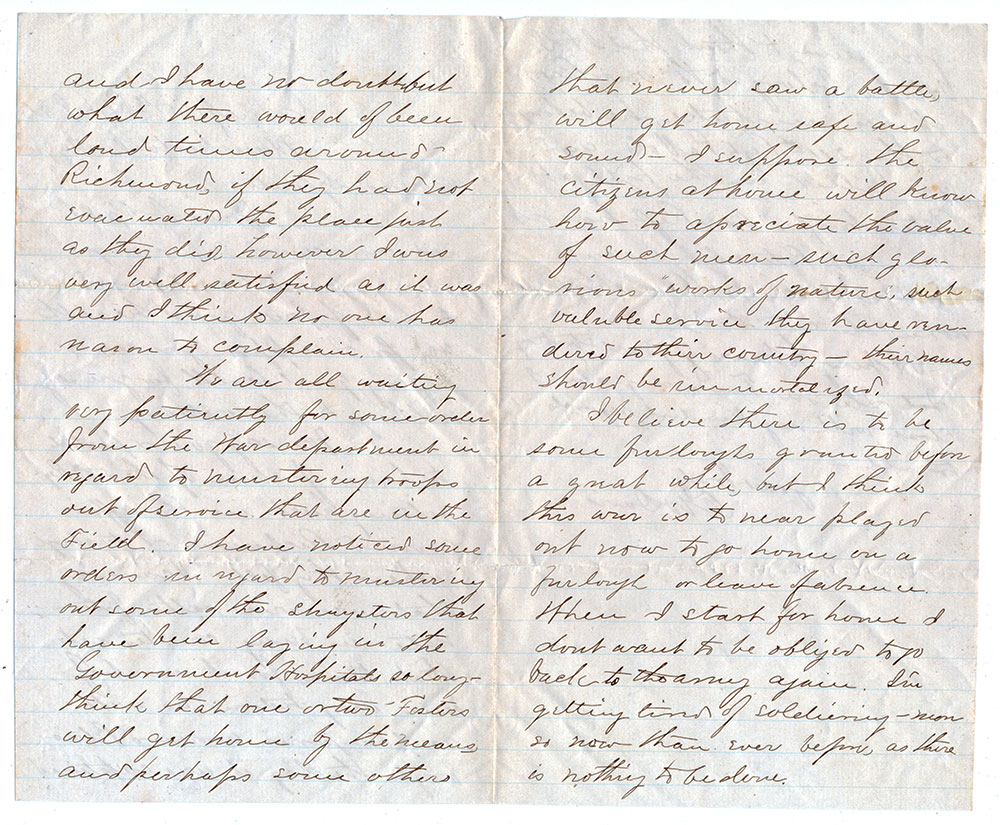 and I have no doubt but
what there would of been
loud times around
Richmond, if they had not
evacuated the place just
as they did, however I was
very well satisfied as it was
and I think no one has
reason to complain.
We are all waiting
very patiently for some order
from the War department in
regard to mustering troops
out of service that are in the
Field. I have noticed some
orders in regard to mustering
out some of the shaysters that
have been laying in the
Government Hospitals so long-
think that one or two Fosters
will get home by the means
and perhaps some others
that never saw a battle,
will get home safe and
sound - I suppose the
citizens at home will know
how to apreciate the value
of such men - such glo-
rious "works of nature," such
valuble service they have ren-
dered to their country - their names
should be immortalized.
I believe there is to be
some furloughs granted before
a great while, but I think
this war is to near played
out now to go home on a
furlough or leave of absence.
When I start for home I
dont want to be obliged to go
back to the army again. I'm
getting tired of soldiering - more
so now than ever before, as there
is nothing to be done.